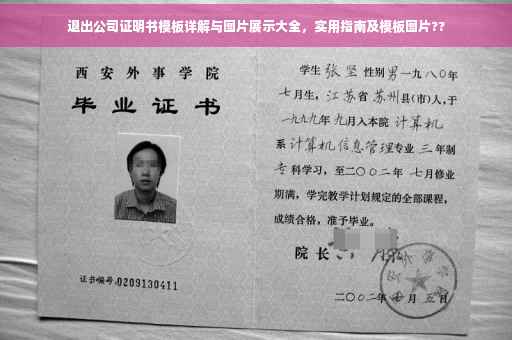 退出公司证明书模板详解与图片展示大全，实用指南及模板图片??
西安外事学院
毕业证书
证书编号:0209130411
学生 张坚 性别 男 一九八〇年
七月生，江苏省 苏州 县(市)人,于
一九九九年 九月入本院 计算机
系 计算机信息管理 专业 三 年制
专科学习，至二〇〇二年 七月修业
期满，学完教学计划规定的全部课程，
成绩合格，准予毕业。
院长
二〇〇二年 七月 五日